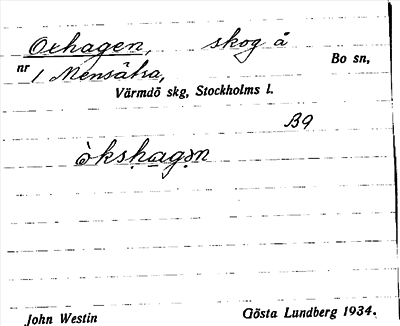 Oxhagen, skog å Bo sn,
nr 1 Mensätra,
Värmdö skg, Stockholms l.
B9
òkshagən
John Westin Gösta Lundberg 1934.